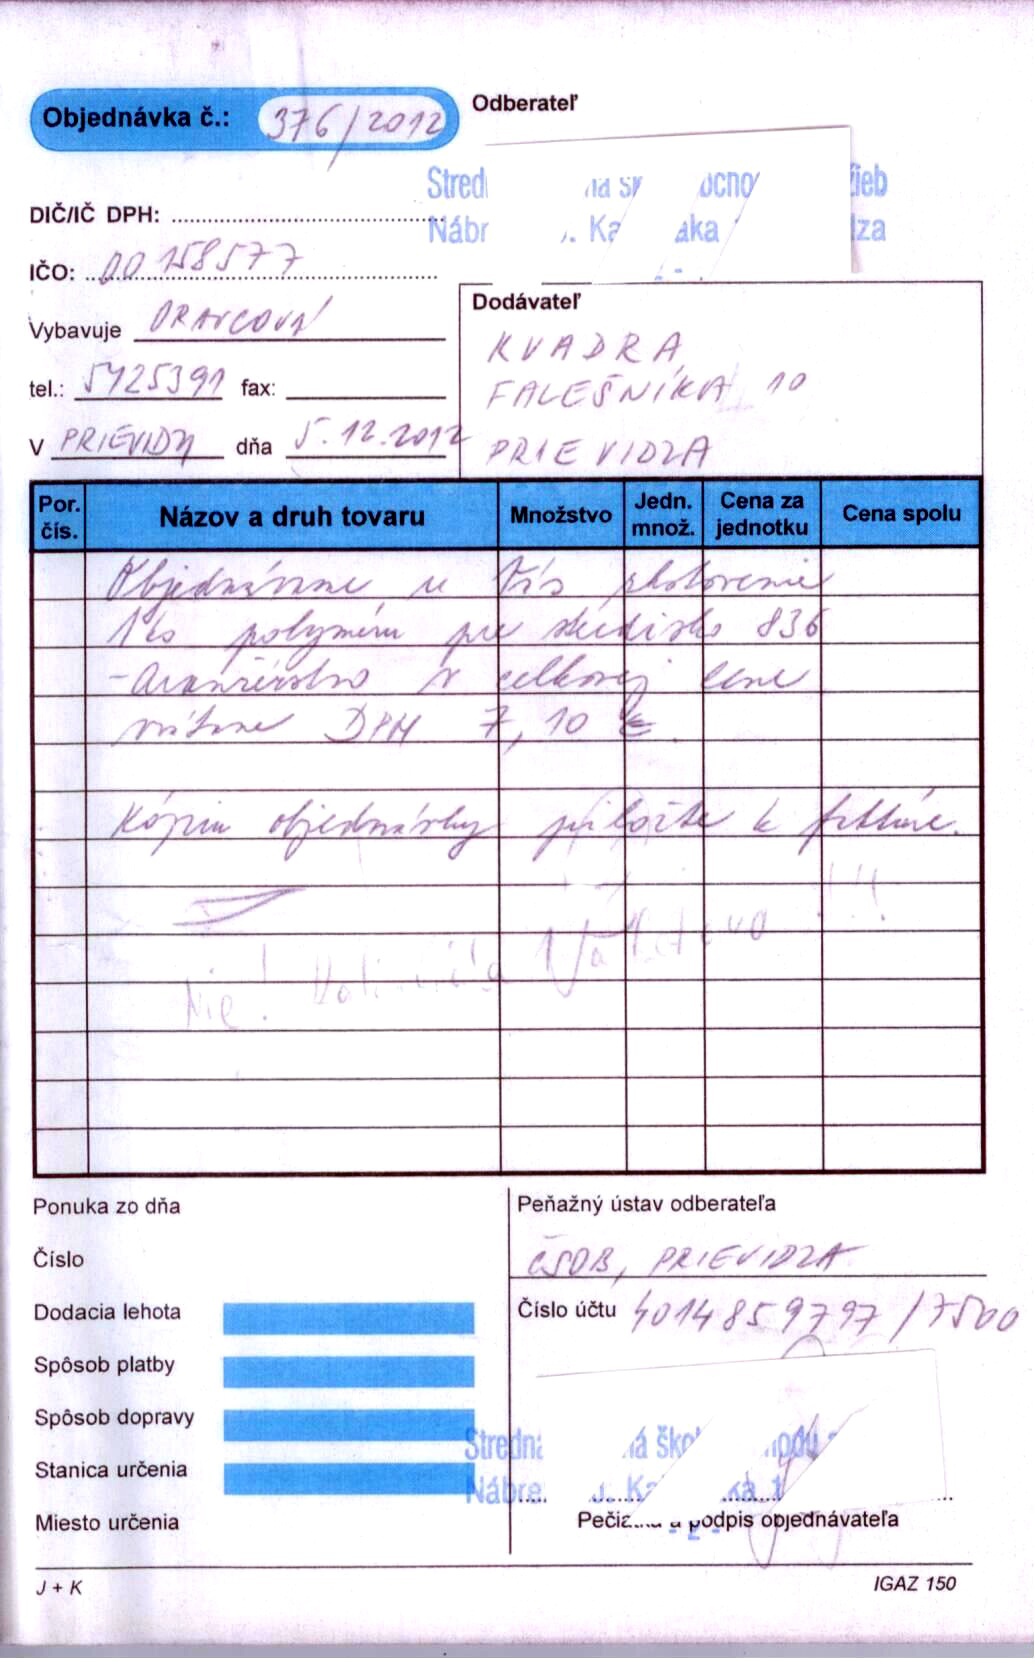 Objednávka č.: 376/2012
Odberateľ
DIČ/IČ DPH:
IČO: 00158577
Vybavuje ORAVCOVÁ
tel.: 5425391 fax:
V PRIEVIDZI dňa 5.12.2012
Dodávateľ
KVADRA
FALEŠNÍKA 10
PRIEVIDZA
Por. čís.
Názov a druh tovaru
Množstvo
Jedn. množ.
Cena za jednotku
Cena spolu
Objednávame u Vás zhotovenie
1 ks polyméru pre stredisko 836
- Aranžérstvo v celkovej cene
vrátane DPH 7,10 €.
Kópiu objednávky priložte k faktúre.
Nie!
Ponuka zo dňa
Číslo
Dodacia lehota
Spôsob platby
Spôsob dopravy
Stanica určenia
Miesto určenia
Peňažný ústav odberateľa
ČSOB, PRIEVIDZA
Číslo účtu 4014859797/7500
a podpis objednávateľa
J + K
IGAZ 150